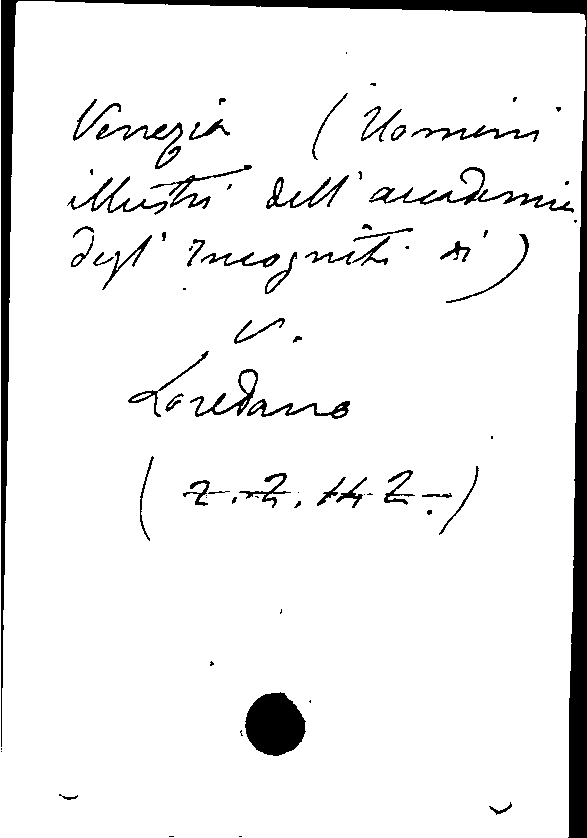 Venezia (Uomini
illustri dell' accademia
degl' Incogniti di)
V.
Loredano